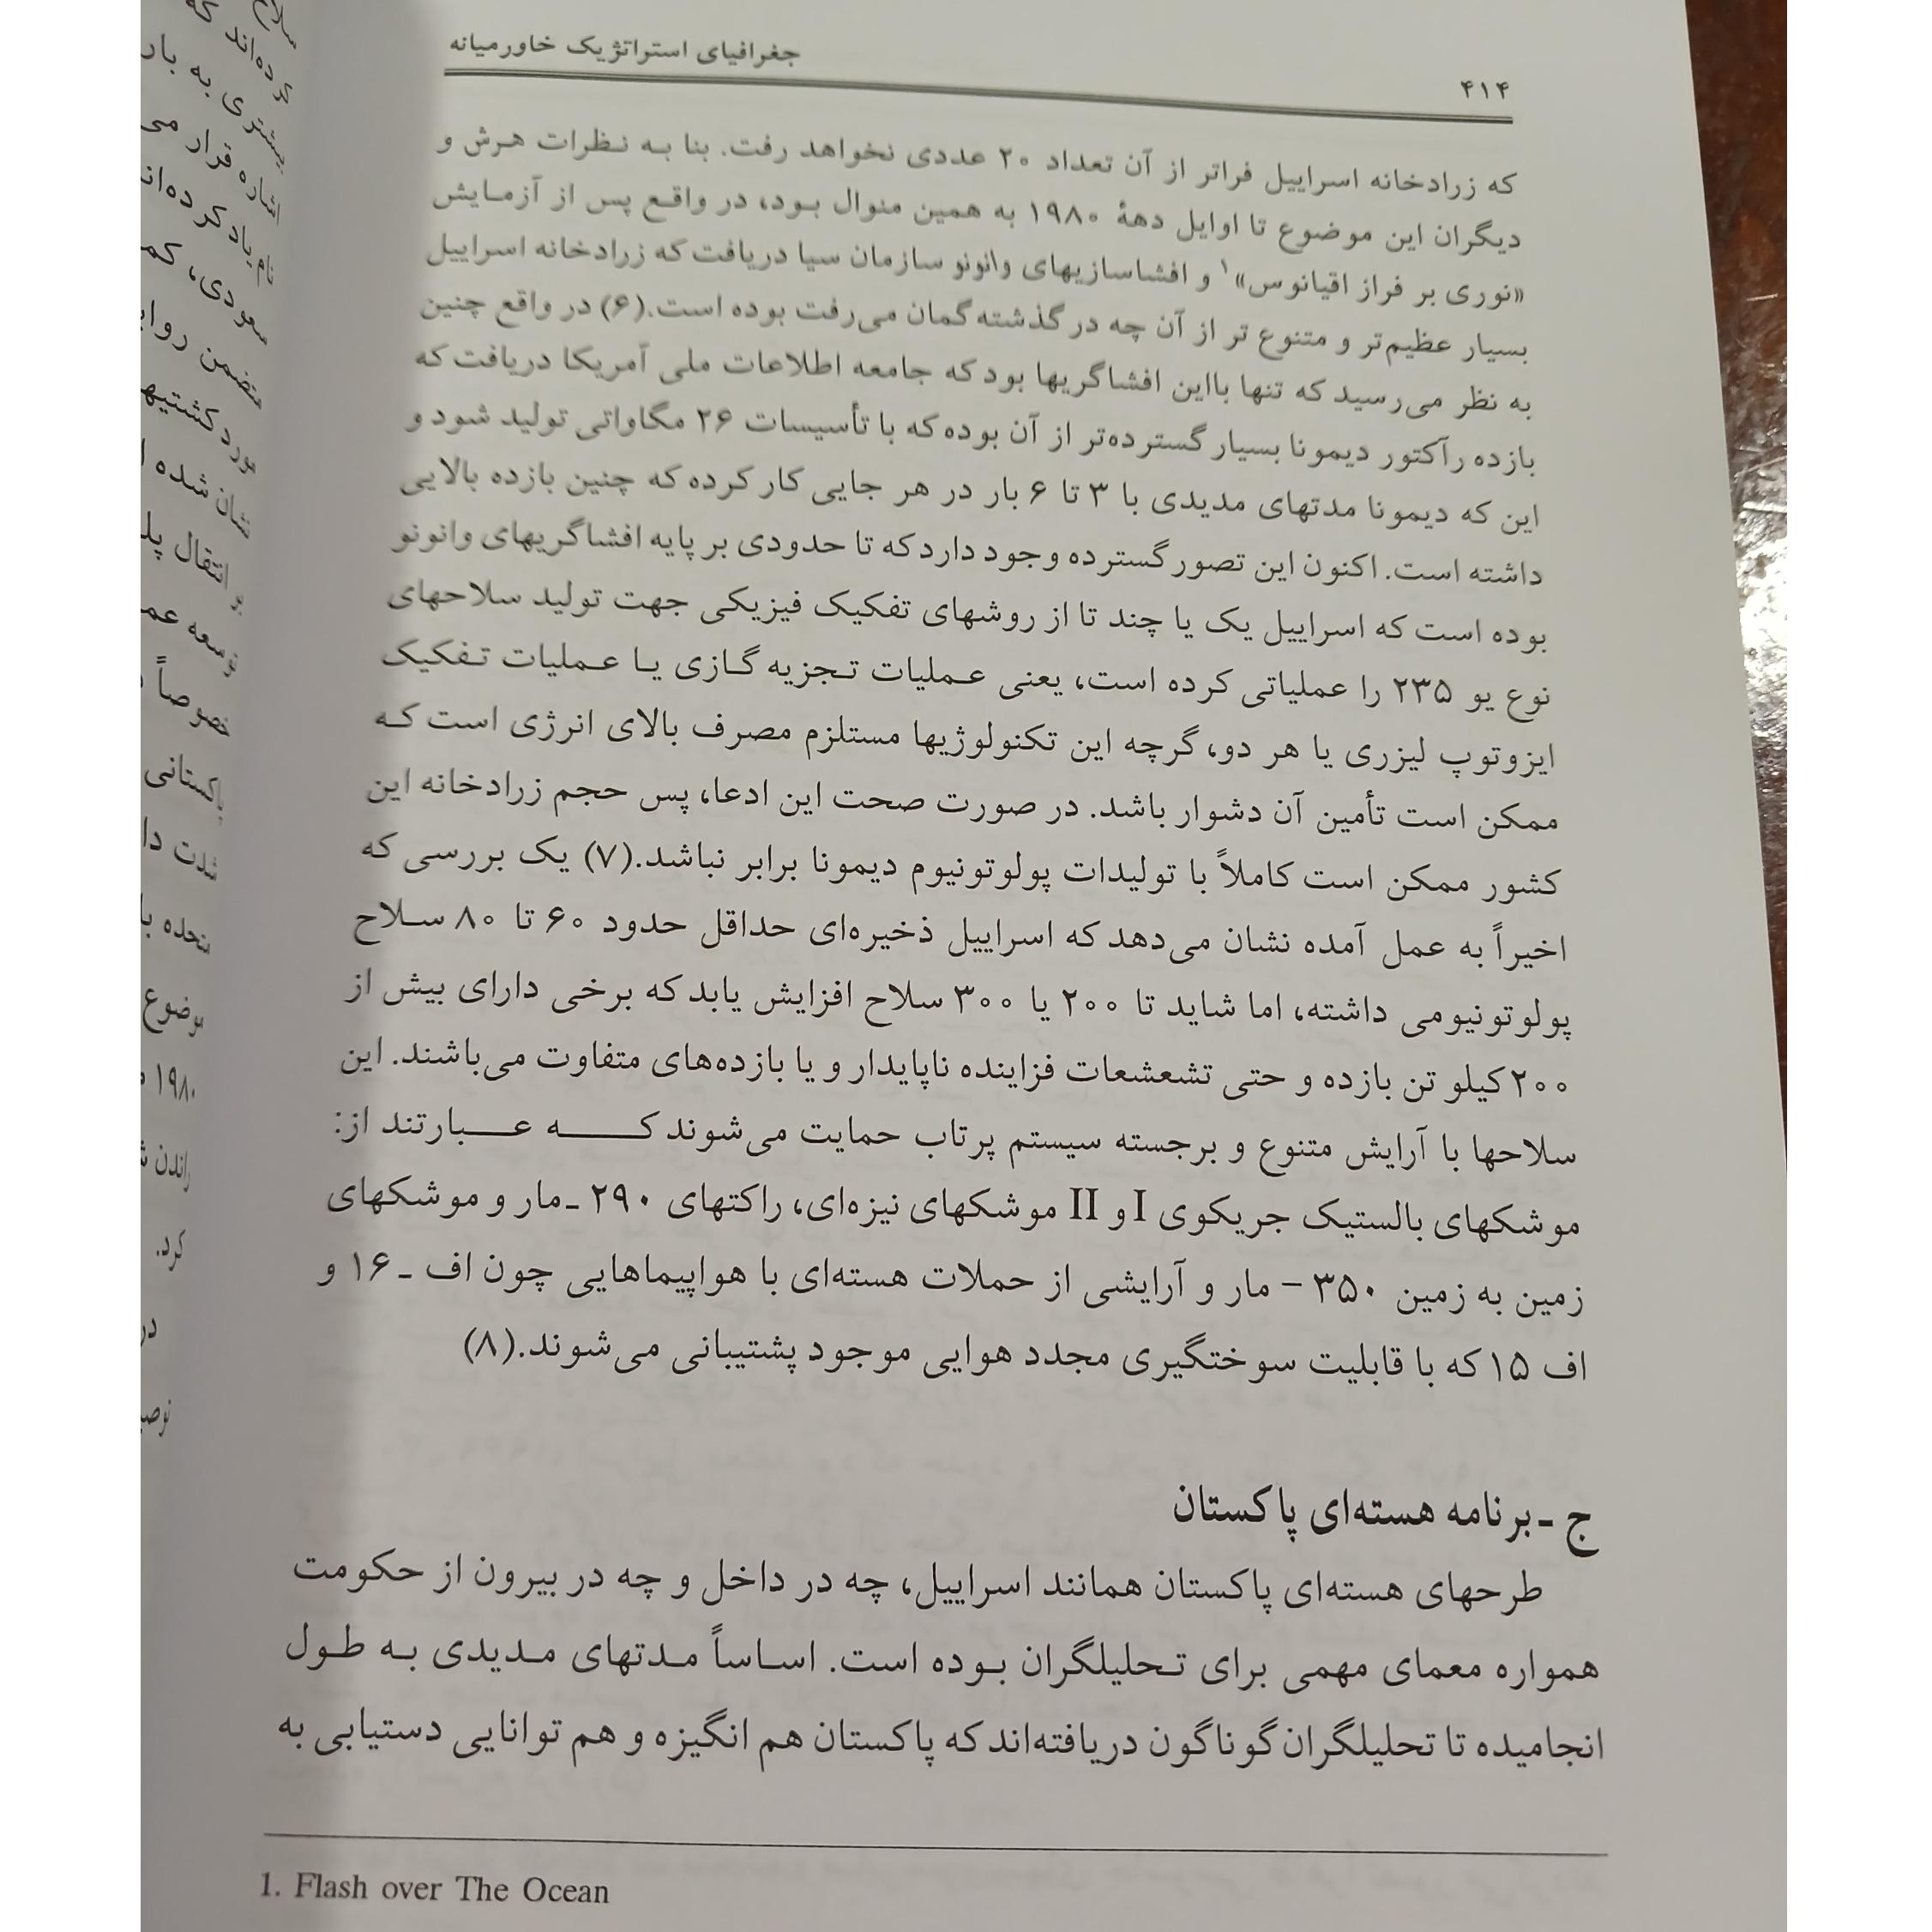 جغرافیای استراتژیک خاورمیانه
۴۱۴
که زرادخانه اسراییل فراتر از آن تعداد ۲۰ عددی نخواهد رفت. بنا به نظرات هرش و
دیگران این موضوع تا اوایل دههٔ ۱۹۸۰ به همین منوال بود، در واقع پس از آزمایش
«نوری بر فراز اقیانوس»۱ و افشاسازیهای وانونو سازمان سیا دریافت که زرادخانه اسراییل
بسیار عظیم‌تر و متنوع تر از آن چه در گذشته گمان می‌رفت بوده است.(۶) در واقع چنین
به نظر می‌رسید که تنها بااین افشاگریها بود که جامعه اطلاعات ملی آمریکا دریافت که
بازده رآکتور دیمونا بسیار گسترده‌تر از آن بوده که با تأسیسات ۲۶ مگاواتی تولید شود و
این که دیمونا مدتهای مدیدی با ۳ تا ۶ بار در هر جایی کار کرده که چنین بازده بالایی
داشته است. اکنون این تصور گسترده وجود دارد که تا حدودی بر پایه افشاگریهای وانونو
بوده است که اسراییل یک یا چند تا از روشهای تفکیک فیزیکی جهت تولید سلاحهای
نوع یو ۲۳۵ را عملیاتی کرده است، یعنی عملیات تجزیه گازی یا عملیات تفکیک
ایزوتوپ لیزری یا هر دو، گرچه این تکنولوژیها مستلزم مصرف بالای انرژی است که
ممکن است تأمین آن دشوار باشد. در صورت صحت این ادعا، پس حجم زرادخانه این
کشور ممکن است کاملاً با تولیدات پولوتونیوم دیمونا برابر نباشد.(۷) یک بررسی که
اخیراً به عمل آمده نشان می‌دهد که اسراییل ذخیره‌ای حداقل حدود ۶۰ تا ۸۰ سلاح
پولوتونیومی داشته، اما شاید تا ۲۰۰ یا ۳۰۰ سلاح افزایش یابد که برخی دارای بیش از
۲۰۰ کیلو تن بازده و حتی تشعشعات فزاینده ناپایدار و یا بازده‌های متفاوت می‌باشند. این
سلاحها با آرایش متنوع و برجسته سیستم پرتاب حمایت می‌شوند که عبارتند از:
موشکهای بالستیک جریکوی I و II موشکهای نیزه‌ای، راکتهای ۲۹۰ ـ مار و موشکهای
زمین به زمین ۳۵۰ – مار و آرایشی از حملات هسته‌ای با هواپیماهایی چون اف ـ ۱۶ و
اف ۱۵ که با قابلیت سوختگیری مجدد هوایی موجود پشتیبانی می‌شوند.(۸)
ج ـ برنامه هسته‌ای پاکستان
طرحهای هسته‌ای پاکستان همانند اسراییل، چه در داخل و چه در بیرون از حکومت
همواره معمای مهمی برای تحلیلگران بوده است. اساساً مدتهای مدیدی به طول
انجامیده تا تحلیلگران گوناگون دریافته‌اند که پاکستان هم انگیزه و هم توانایی دستیابی به
1. Flash over The Ocean
کرده‌اند که
بیشتری به بار
اشاره قرار می
نام یاد کرده‌اند
سعودی، کم
متضمن روا
مورد کشتیها
نشان شده ا
و انتقال پلو
توسعه عم
خصوصاً
پاکستانی
شدت دا
متحده با
موضوع
۱۹۸۰
راندن ش
کرد.
در
توصی